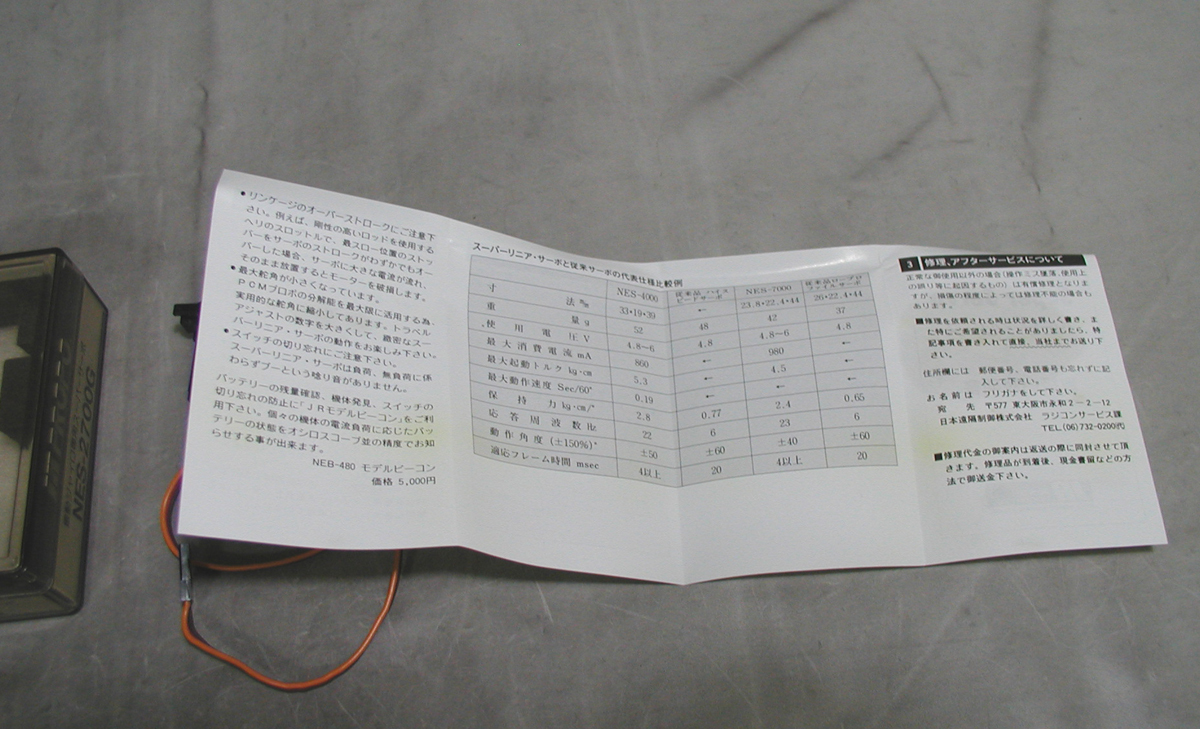 ●リンケージのオーバーストロークにご注意下
さい。例えば、剛性の高いロッドを使用する
ヘリのスロットルで、最スロー位置のストッ
パーをサーボのストロークがわずかでもオー
バーした場合、サーボに大きな電流が流れ、
そのまま放置するとモーターを破損します。
●最大舵角が小さくなっています。
PCMプロポの分解能を最大限に活用する為、
実用的な舵角に縮小してあります。トラベル
アジャストの数字を大きくして、緻密なスー
パーリニア・サーボの動作をお楽しみ下さい。
●スイッチの切り忘れにご注意下さい。
スーパーリニア・サーボは負荷、無負荷に係
わらずブーという唸り音がありません。
バッテリーの残量確認、機体発見、スイッチの
切り忘れの防止に「JRモデルビーコン」をご利
用下さい。個々の機体の電流負荷に応じたバッ
テリーの状態をオシロスコープ並の精度でお知
らせする事が出来ます。
NEB-480 モデルビーコン
価格 5,000円
スーパーリニア・サーボと従来サーボの代表仕様比較例
NES-4000 従来品・ハイスピードサーボ NES-7000
寸法 33・19・39 ← 23.8・22.4・44 26・22.4・44
重量g 52 48 42 37
使用電圧V 4.8~6 4.8 4.8~6 4.8
最大消費電流mA 860 ← 980 ←
最大起動トルクkg・cm 5.3 ← 4.5 ←
最大動作速度 Sec/60° 0.19 ←
保持力kg・cm/° 2.8 0.77 2.4 0.65
応答周波数Hz 22 6 23 6
動作角度(±150%)° ±50 ±60 ±40 ±60
適応フレーム時間 msec 4以上 20 4以上 20
3 修理、アフターサービスについて
正常な御使用以外の場合(操作ミス墜落、使用上
の誤り等に起因するもの)は有償修理となりま
すが、損傷の程度によっては修理不能の場合も
あります。
■修理を依頼される時は状況を詳しく書き、ま
た特にご希望されることがありましたら、特
記事項を書き入れて直接、当社までお送り下
さい。
住所欄には 郵便番号、電話番号も忘れずに記
入して下さい。
お名前は フリガナをして下さい。
宛先 〒577 東大阪市永和2-2-12
日本遠隔制御株式会社 ラジコンサービス課
TEL.(06)732-0200代
■修理代金の御案内は返送の際に同封させて頂
きます。修理品が到着後、現金書留などの方
法で御送金下さい。
NES-2700G